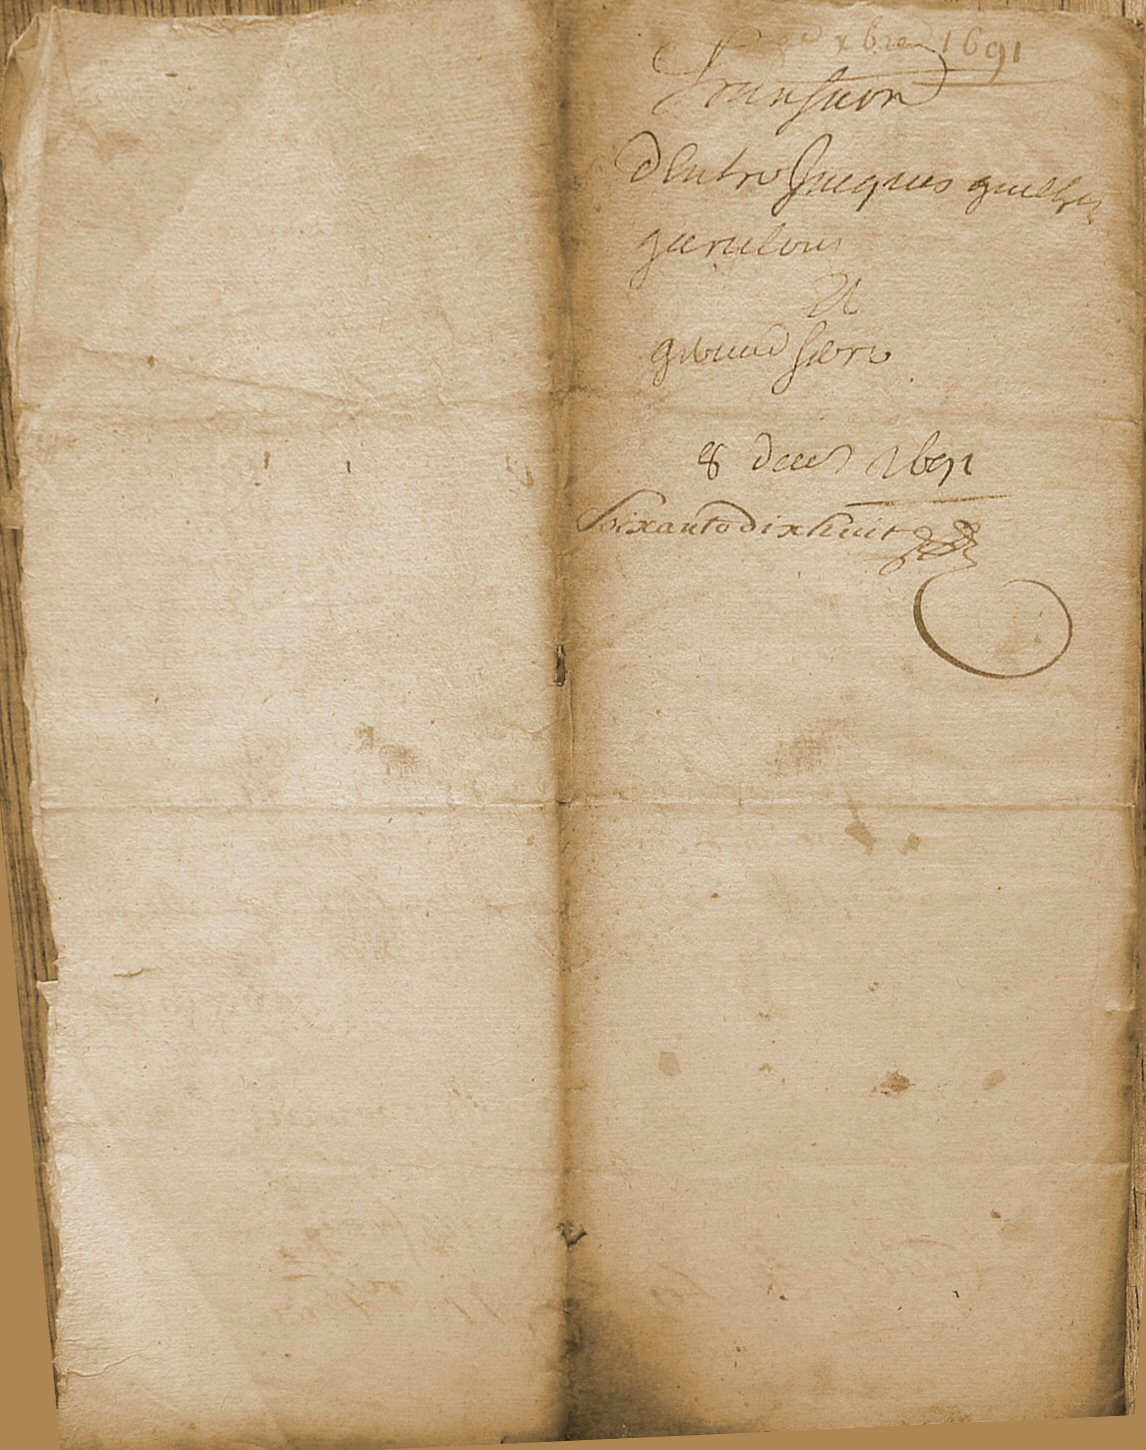 xbre 1691
Transaction
dentre Jacques guilhen
garulous
Et
8 decem 1691
Soixante dix huit